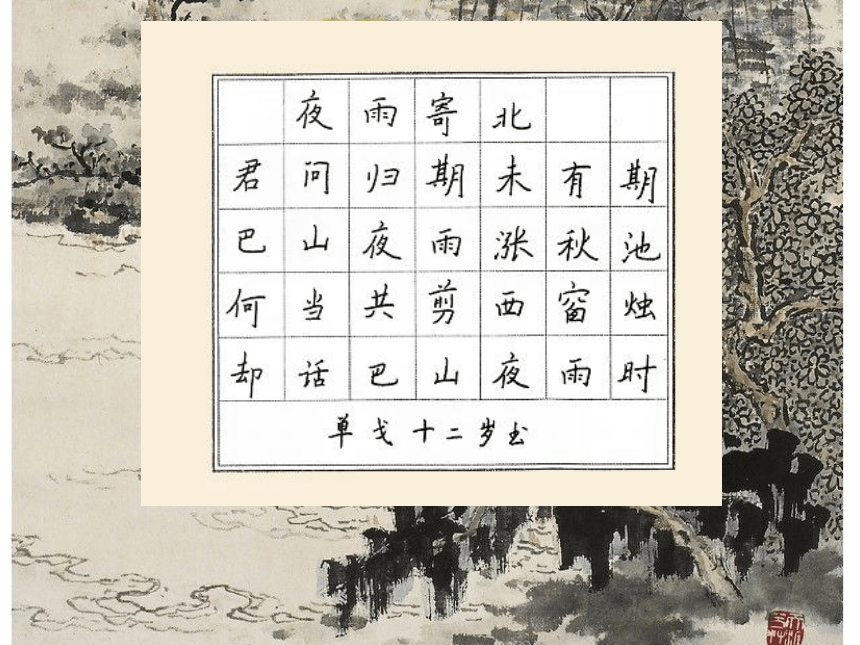 夜雨寄北
君问归期未有期
巴山夜雨涨秋池
何当共剪西窗烛
却话巴山夜雨时
单戈十二岁书